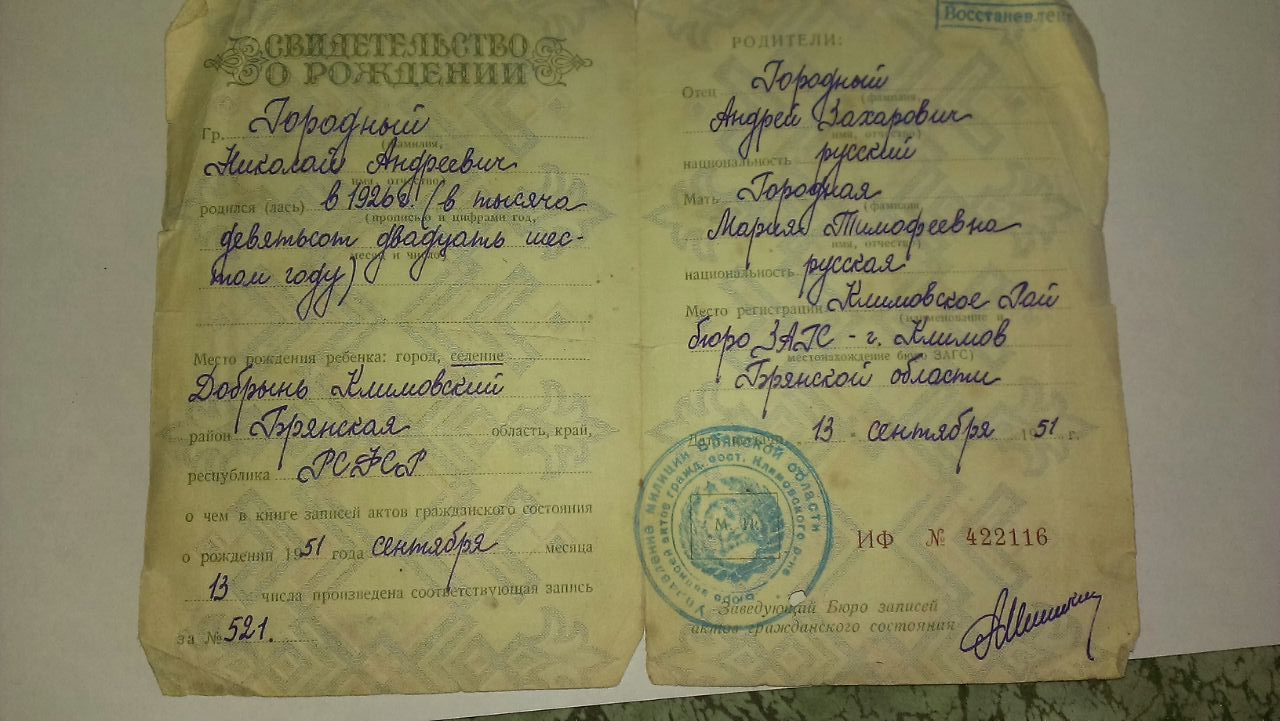 СВИДЕТЕЛЬСТВО
О РОЖДЕНИИ
Гр. Городный
(фамилия,
Николай Андреевич
имя, отчество)
родился (лась) в 1926 г. (в тысяча
(прописью и цифрами год,
девятьсот двадцать шес-
месяц и число)
том году)
Место рождения ребенка: город, селение
Добрынь Климовский
район Брянская область, край,
республика РСФСР
о чем в книге записей актов гражданского состояния
о рождении 1951 года сентября месяца
13 числа произведена соответствующая запись
за № 521.
Восстановлен
РОДИТЕЛИ:
Отец Городный
(фамилия
Андрей Захарович
имя, отчество)
национальность русский
Мать Городная
(фамилия
Мария Тимофеевна
имя, отчество)
национальность русская
Место регистрации Климовское Рай
(наименование и
бюро ЗАГС - г. Климов
местонахождение бюро ЗАГС)
Брянской области
Дата выдачи „13" сентября 1951 г.
Управление милиции Брянской области
Бюро записей актов гражд. сост. Климовского р-на
М. П.
ИФ № 422116
Заведующий Бюро записей
актов гражданского состояния